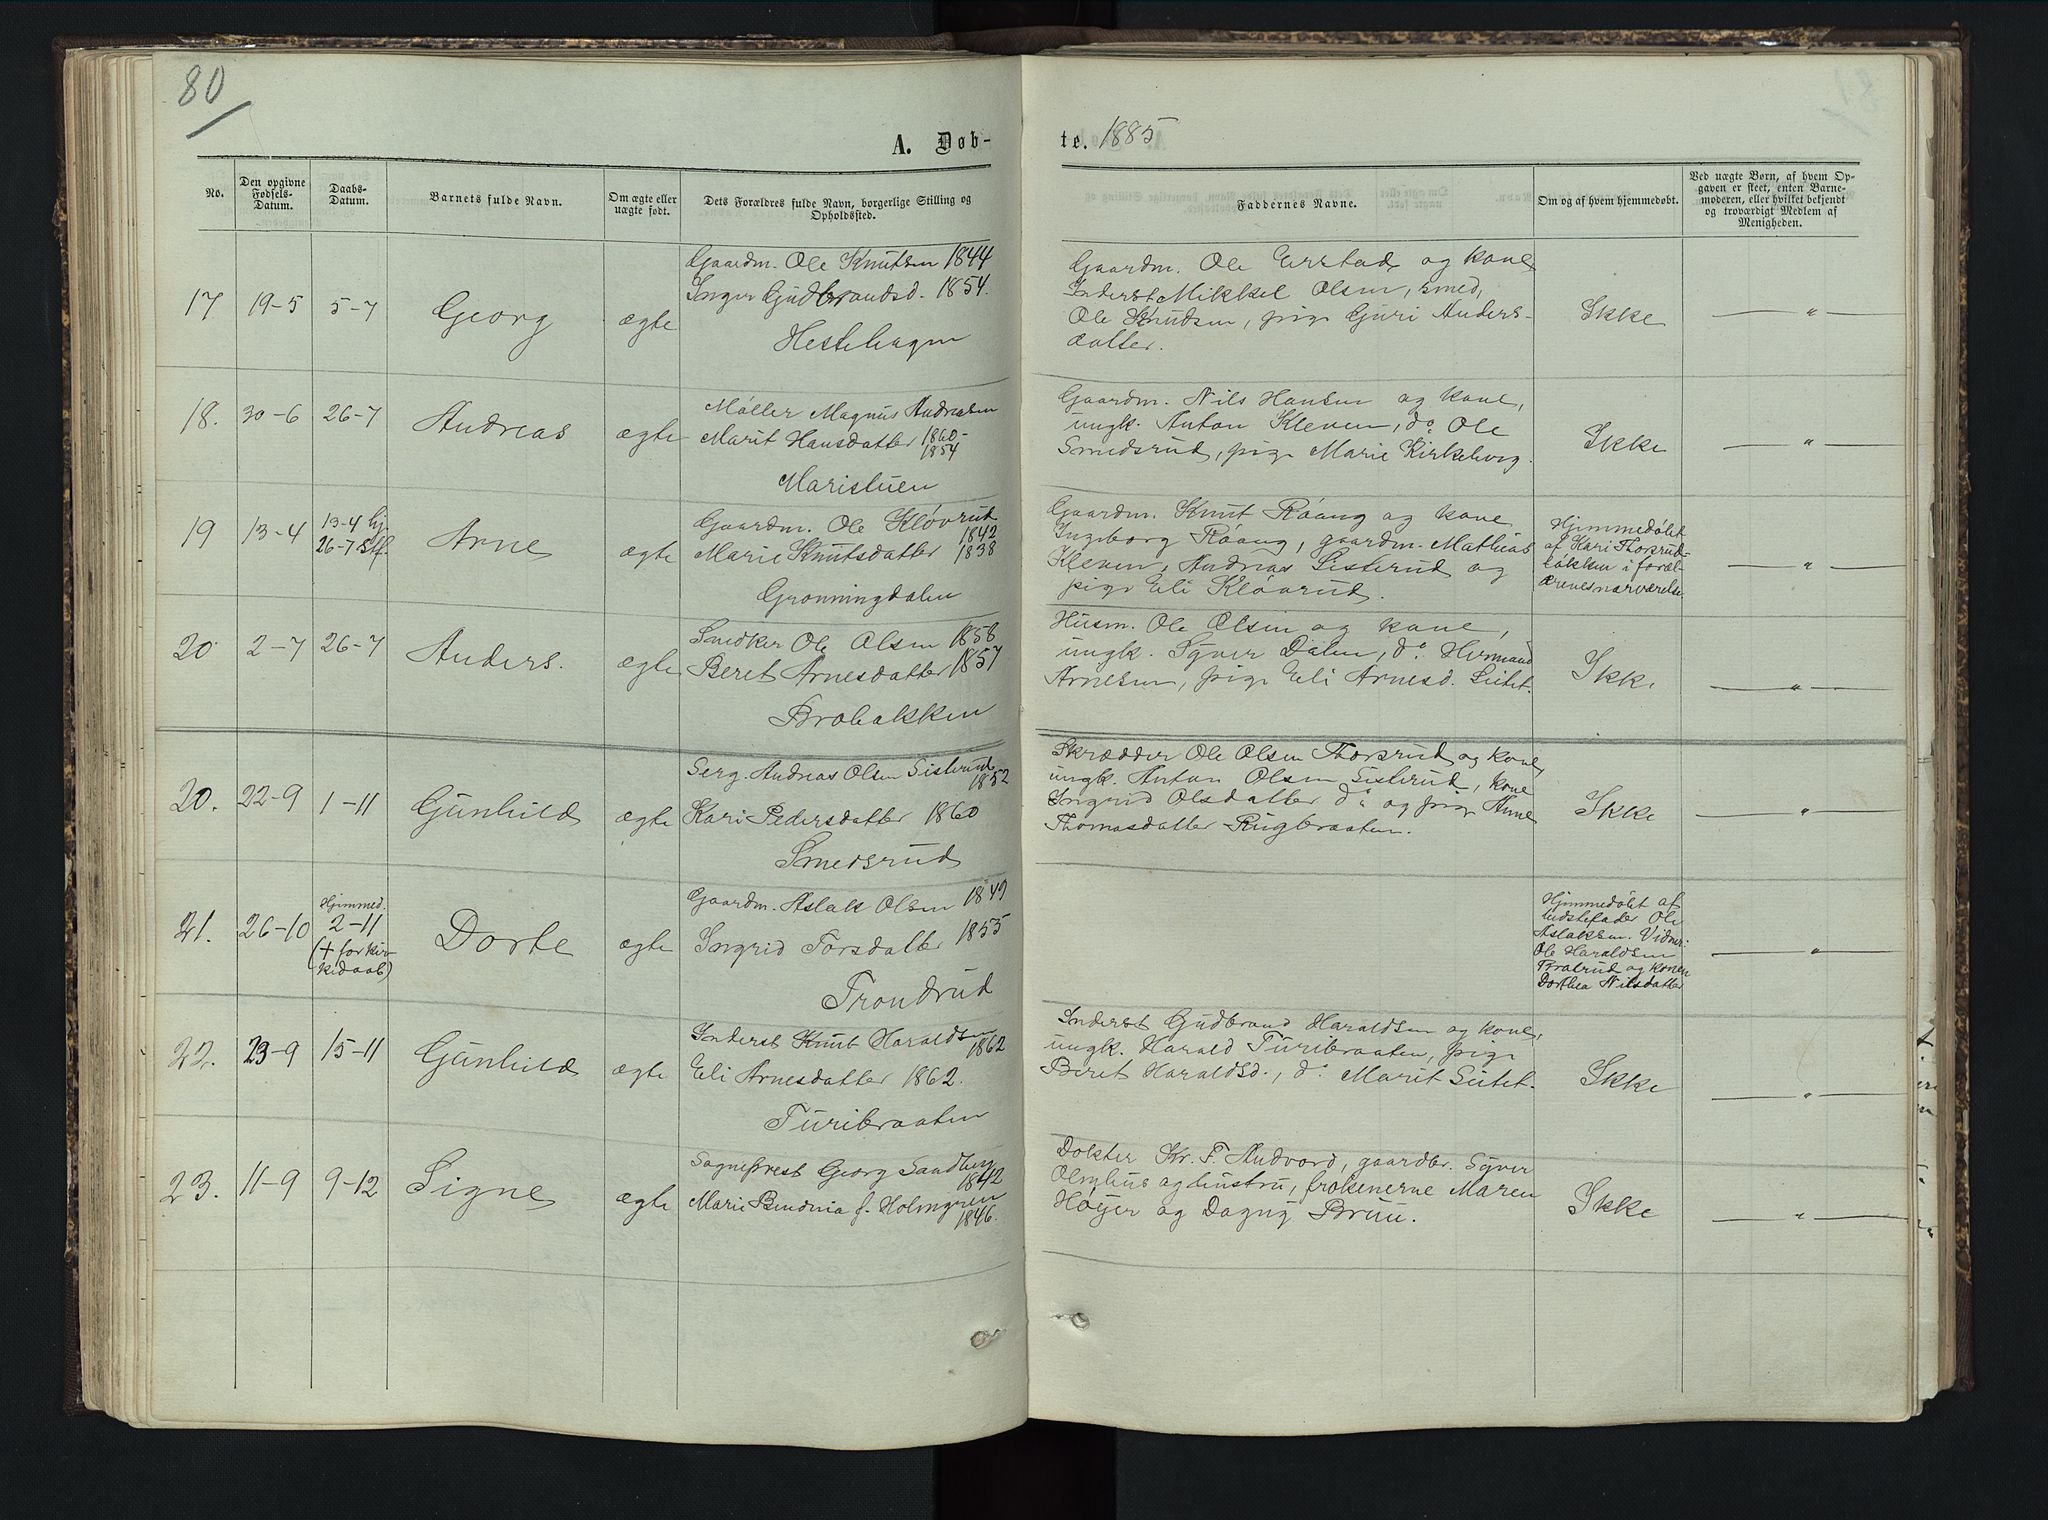 80
A. Døb-
te. 1885
No.
Den opgivne Fødsels-Datum.
Daabs-Datum.
Barnets fulde Navn.
Om ægte eller uægte født.
Dets Forældres fulde Navn, borgerlige Stilling og Opholdssted.
Faddernes Navne.
Om og af hvem hjemmedøbt.
Ved uægte Børn, af hvem Opgaven er skeet, enten Barnemoderen, eller hvilket bekjendt og troværdigt Medlem af Menigheden.
17. 19-5 5-7 Georg ægte
Gaardm. Ole Knutsen 1844
Inger Gudbrandsd. 1854.
Hestehagen
Gaardm. Ole Erstad og kone
Inderst Mikkel Olsen, smed,
Ole Knudsen, pige Guri Anders-
datter.
Ikke
— " —
18. 30-6 26-7 Andreas ægte
Møller Magnus Andreasen
Marit Hansdatter 1860-
1854
Maristuen
Gaardm. Nils Hansen og kone,
ungk. Anton Kleven, do Ole
Smedsrud, pige Marie Kirkevog.
Ikke
— " —
19 13-4 13-4 hj.
26-7 Stf. Arne ægte
Gaardm. Ole Kløvrud
1842
Marie Knutsdatter 1838
Grønningdalen
Gaardm. Knut Røang og kone
Ingeborg Røang, gaardm. Mathias
Kleven, Andreas Sisterud og
pige Eli Kløvrud.
Hjemmedøbt
af Kari Thorsrud-
løkken i foræl-
drenes nærværelse
— " —
20 2-7 26-7 Anders. ægte
Smedker Ole Olsen 1858
Beret Arnesdatter 1857
Brobakken
Husm. Ole Olsen og kone,
ungk. Syver Dalen, do Hermand
Arnesen, pige Eli Arnesd. Sletet.
Ikke
— " —
20. 22-9 1-11 Gunhild ægte
Serg. Andreas Olsen Sisterud
1852
Kari Pedersdatter 1860
Smedsrud
Skrædder Ole Olsen Thorsrud og kone,
ungk. Anton Olsen Sisterud, kone
Ingrid Olsdatter do og pige Anne
Thomasdatter Rugbraaten.
Ikke
— " —
21. 26-10 Hjemmed.
2-11
(+ for kir-
kedaab) Dorte ægte
Gaardm. Aslak Olsen 1849
Ingrid Torsdatter 1855
Trondrud
Hjemmedøbt af
bedstefader Ole
Aslaksen. Vidner:
Ole Haraldsen
Bratrud og konen
Dorthea Nilsdatter
— " —
22. 23-9 15-11 Gunhild ægte
Inderst Knut Haraldsen
1862
Eli Arnesdatter 1862.
Turibraaten
Inderst Gudbrand Haraldsen og kone,
ungk. Harald Turibraaten, pige
Beret Haraldsd., do Marit Sletet.
Ikke
— " —
23. 11-9 9-12 Signe ægte
Sogneprest Georg Sandberg
1842
Marie Bendinia f. Holmgren
1846.
Doktor Kr. F. Andvord, gaardbr. Syver
Olmhus og hustru, frøkenerne Maren
Høyer og Dagny Bruu.
Ikke
— " —